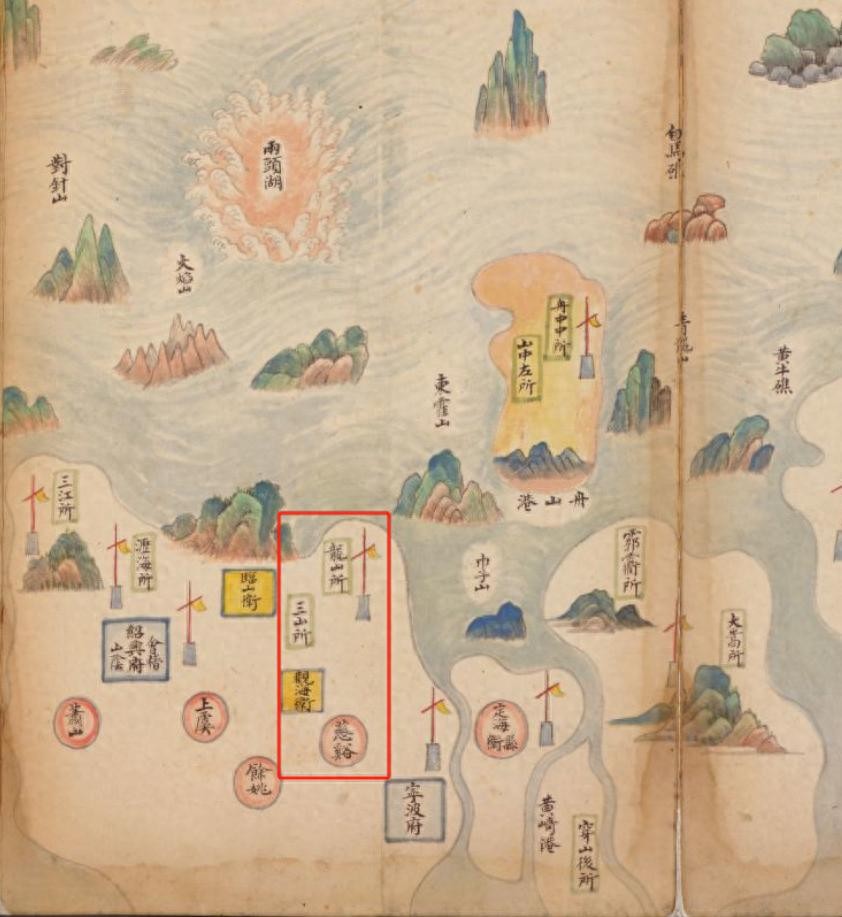 對針山
兩頭湖
火焰山
白馬礁
舟中中所
山中左所
東霍山
青龍山
黄牛礁
舟山港
三江所
瀝海所
臨山衛
龍山所
三山所
觀海衛
慈谿
紹興府
會稽
山陰
蕭山
上虞
餘姚
巾子山
霩衢所
大嵩所
定海縣
衛
寧波府
黄崎港
穿山後所